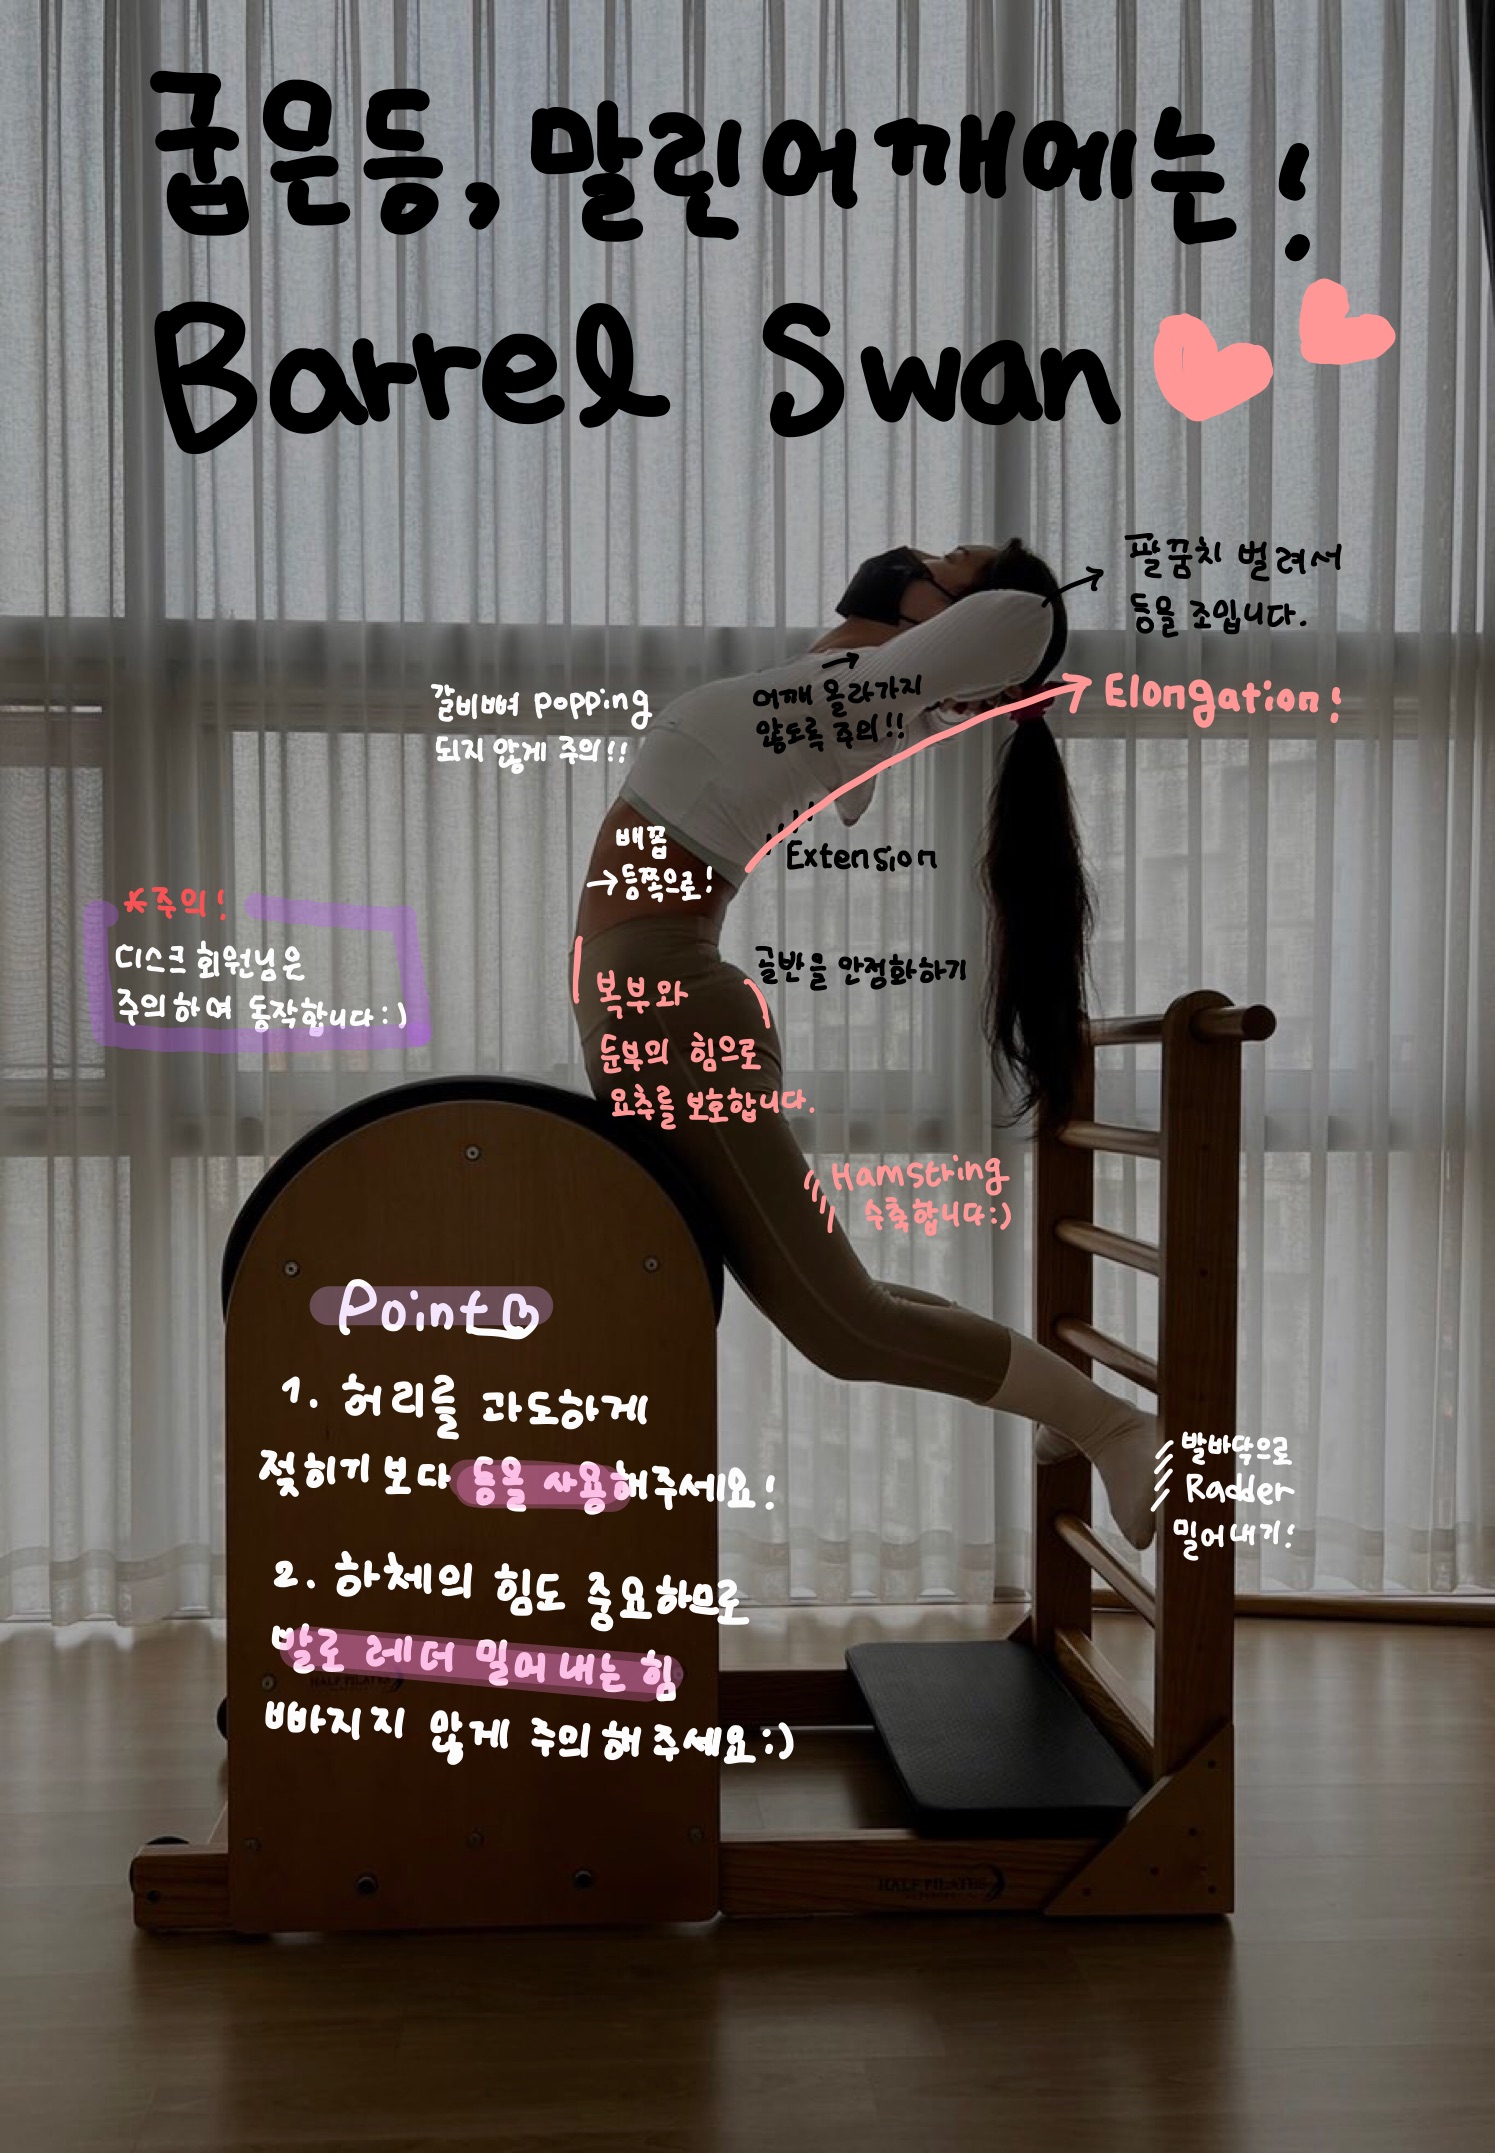 굽은등, 말린어깨에는!
Barrel Swan
팔꿈치 벌려서
등을 조입니다.
갈비뼈 popping
되지 않게 주의!!
어깨 올라가지
않도록 주의!!
Elongation!
배꼽
→등쪽으로!
Extension
*주의!
디스크 회원님은
주의하여 동작합니다:)
골반을 안정화하기
복부와
둔부의 힘으로
요추를 보호합니다.
Hamstring
수축합니다:)
Point
1. 허리를 과도하게
젖히기 보다 등을 사용해주세요!
2. 하체의 힘도 중요하므로
발로 레더 밀어내는 힘
빠지지 않게 주의해주세요:)
발바닥으로
Radder
밀어내기!
HALF PILATES
HALF PILATES